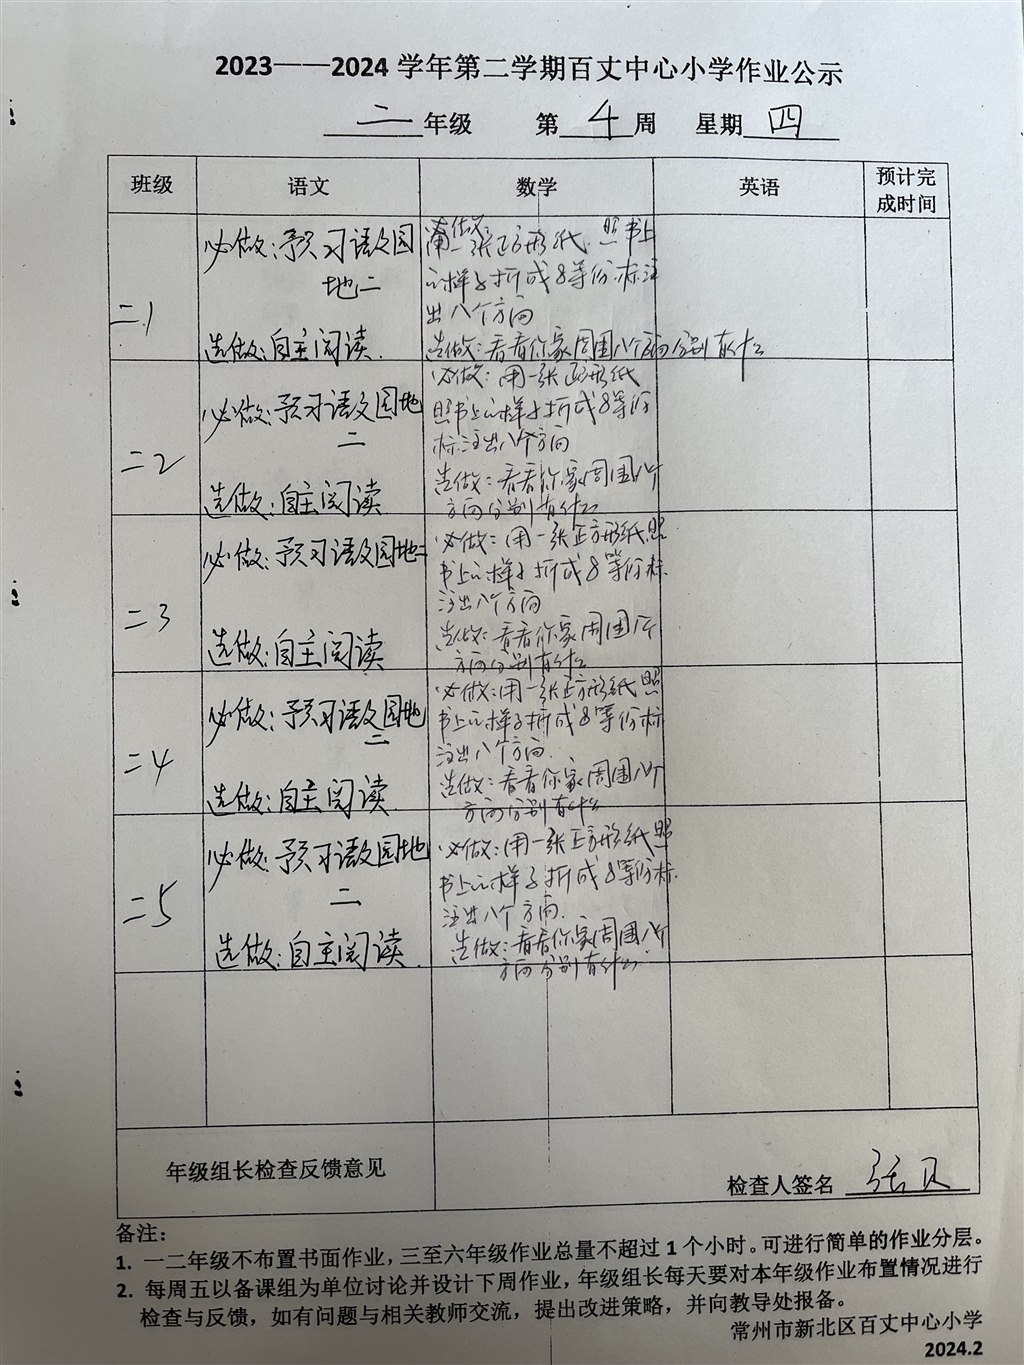 2023——2024 学年第二学期百丈中心小学作业公示
二年级 第 4 周 星期 四
班级 语文 数学 英语 预计完
成时间
二1
必做：预习语文园
地二
选做：自主阅读.
用一张正方形纸.照书上
的样子折成8等份.标注
出八个方向
选做：看看你家周围八个方向分别有什么
二2
必做：预习语文园地
二
选做：自主阅读
必做：用一张正方形纸
照书上的样子折成8等份
标注出八个方向
选做：看看你家周围八个
方向分别有什么
二3
必做：预习语文园地二
选做：自主阅读
必做：用一张正方形纸照
书上的样子折成8等份标
注出八个方向
选做：看看你家周围八个
方向分别有什么
二4
必做：预习语文园地
二
选做：自主阅读.
必做：用一张正方形纸照
书上的样子折成8等份标
注出八个方向.
选做：看看你家周围八个
方向分别有什么
二5
必做：预习语文园地
二
选做：自主阅读.
必做：用一张正方形纸照
书上的样子折成8等份标
注出八个方向.
选做：看看你家周围八个
方向分别有什么
年级组长检查反馈意见
检查人签名 张
备注：
1. 一二年级不布置书面作业，三至六年级作业总量不超过 1 个小时。可进行简单的作业分层。
2. 每周五以备课组为单位讨论并设计下周作业，年级组长每天要对本年级作业布置情况进行
检查与反馈，如有问题与相关教师交流，提出改进策略，并向教导处报备。
常州市新北区百丈中心小学
2024.2